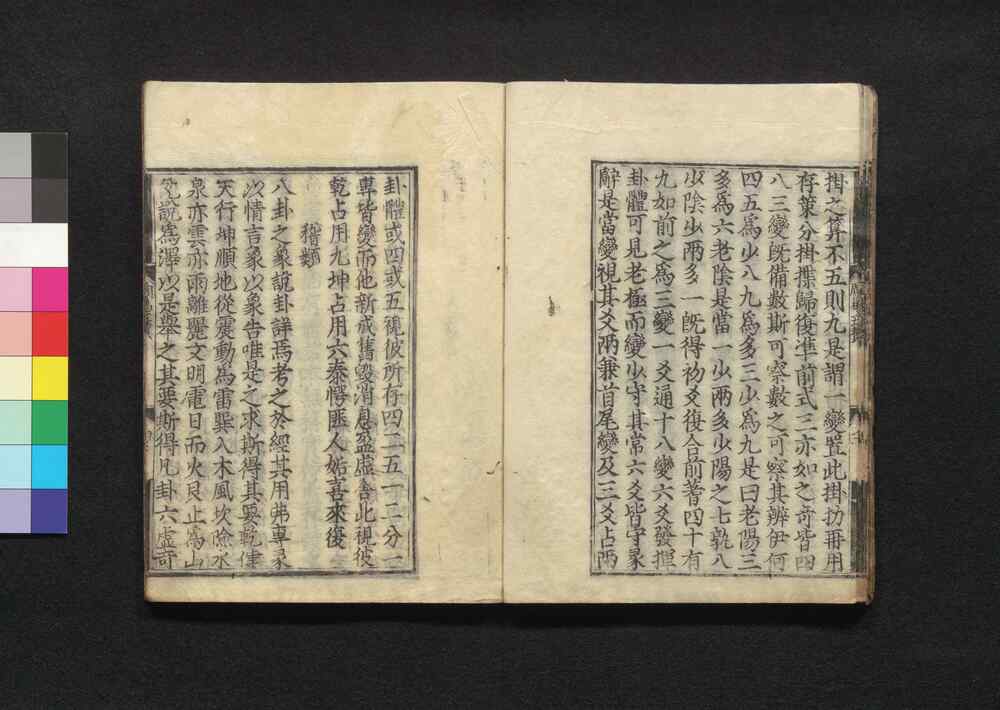 掛之筭不五則九是謂一變置此掛扐再用
存策分掛揲歸復準前式三亦如之奇皆四
八三變旣備數斯可察數之可察其辨伊何
四五爲少八九爲多三少爲九是曰老陽三
多爲六老陰是當一少兩多少陽之七孰八
少陰少兩多一旣得初爻復合前蓍四十有
九如前之爲三變一爻通十八變六爻發揮
卦體可見老極而變少守其常六爻皆守彖
辭是當變視其爻兩兼首尾變及三爻占兩
卦體或四或五視彼所存四二五一二分一
專皆變而他新成舊毀消息盈虛舍此視彼
乾占用九坤占用六泰愕匪人姤喜來復
稽類
八卦之象說卦詳焉考之於經其用弗專彖
以情言象以象告唯是之求斯得其要乾健
天行坤順地從震動爲雷巽入木風坎險水
泉亦雲亦雨離麗文明電日而火艮止爲山
兌說爲澤以是擧之其要斯得凡卦六虛奇